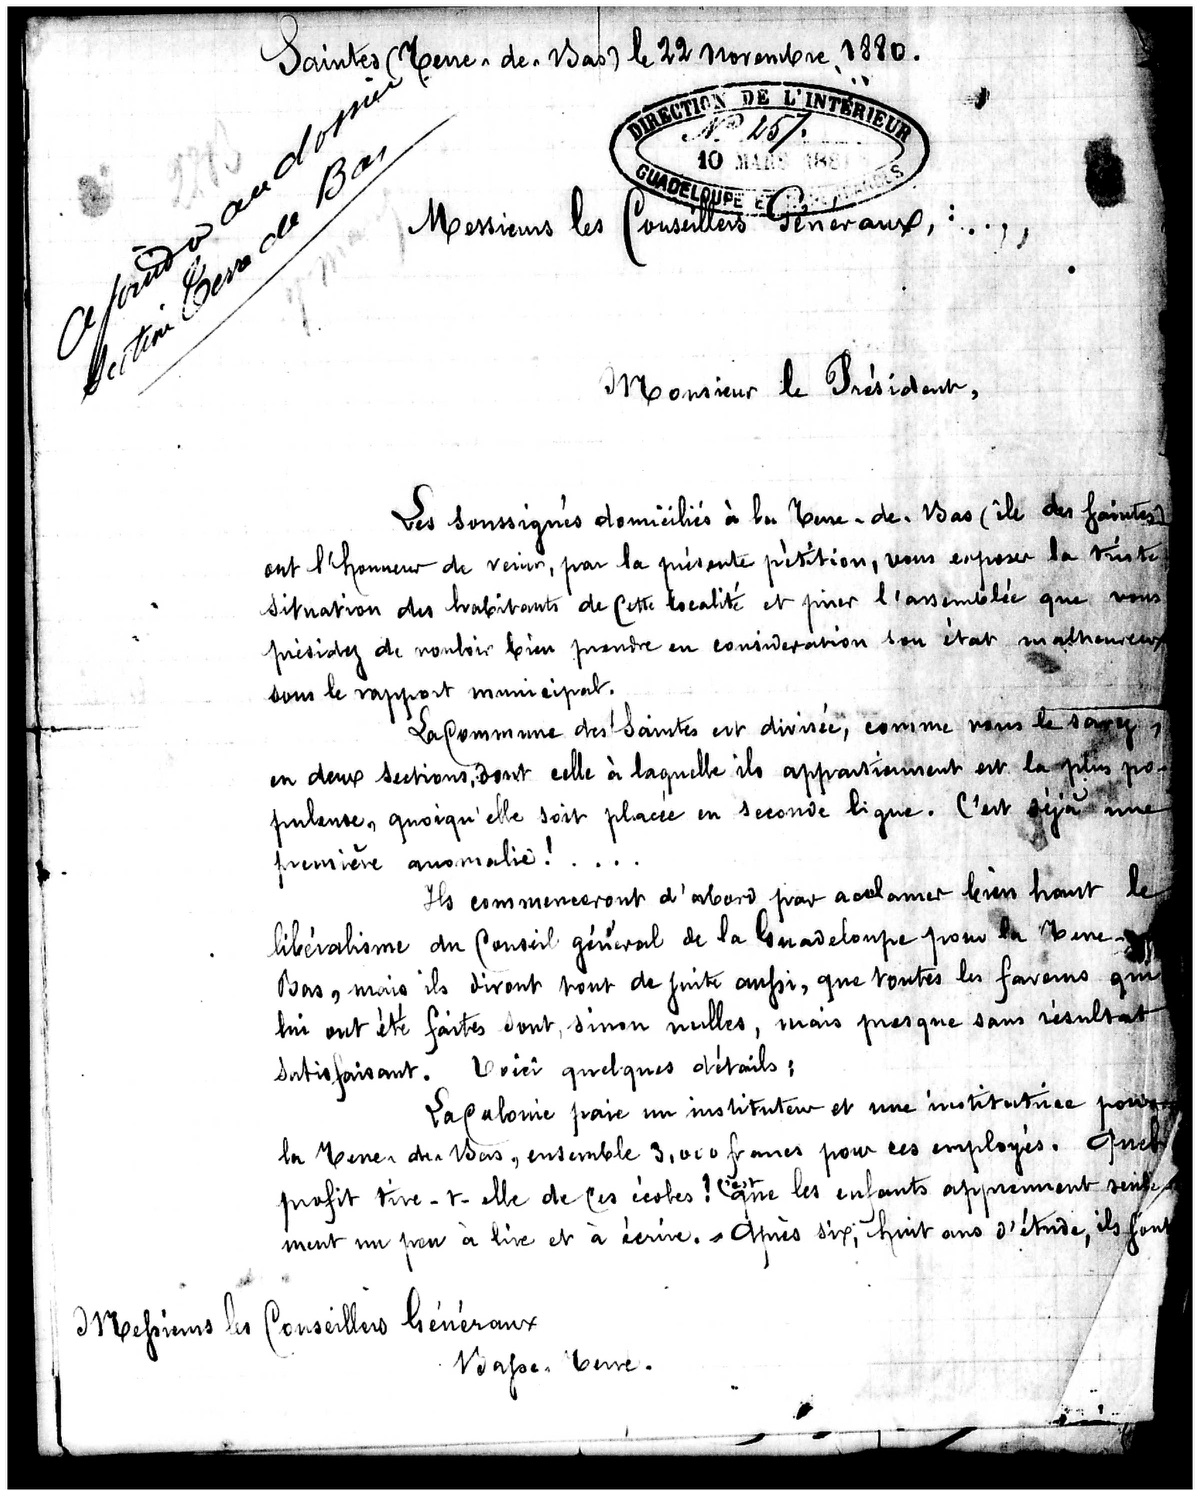 Saintes (Terre-de-Bas) le 22 Novembre 1880.
DIRECTION DE L'INTÉRIEUR
N° 257.
10 MARS 188
GUADELOUPE ET DÉPENDANCES
A joindre au dossier
Section Terre de Bas
Messieurs les Conseillers Généraux,
Monsieur le Président,
Les soussignés domiciliés à la Terre-de-Bas (île des Saintes)
ont l'honneur de venir, par la présente pétition, vous exposer la triste
situation des habitants de cette localité et prier l'assemblée que vous
présidez de vouloir bien prendre en considération son état malheureux
sous le rapport municipal.
La Commune des Saintes est divisée, comme vous le savez,
en deux sections, dont celle à laquelle ils appartiennent est la plus po-
puleuse, quoiqu'elle soit placée en seconde ligne. C'est déjà une
première anomalie! . . . .
Ils commenceront d'abord par acclamer bien haut le
libéralisme du Conseil général de la Guadeloupe pour la Terre-de-
Bas, mais ils diront tout de suite aussi, que toutes les faveurs qui
lui ont été faites sont, sinon nulles, mais presque sans résultat
satisfaisant. Voici quelques détails:
La Colonie paie un instituteur et une institutrice pour
la Terre-de-Bas, ensemble 3,000 francs pour ces employés. Quel
profit tire-t-elle de ces écoles! c'est que les enfants apprennent seule-
ment un peu à lire et à écrire. Après six, huit ans d'étude, ils sont
Messieurs les Conseillers Généraux
Basse-Terre.